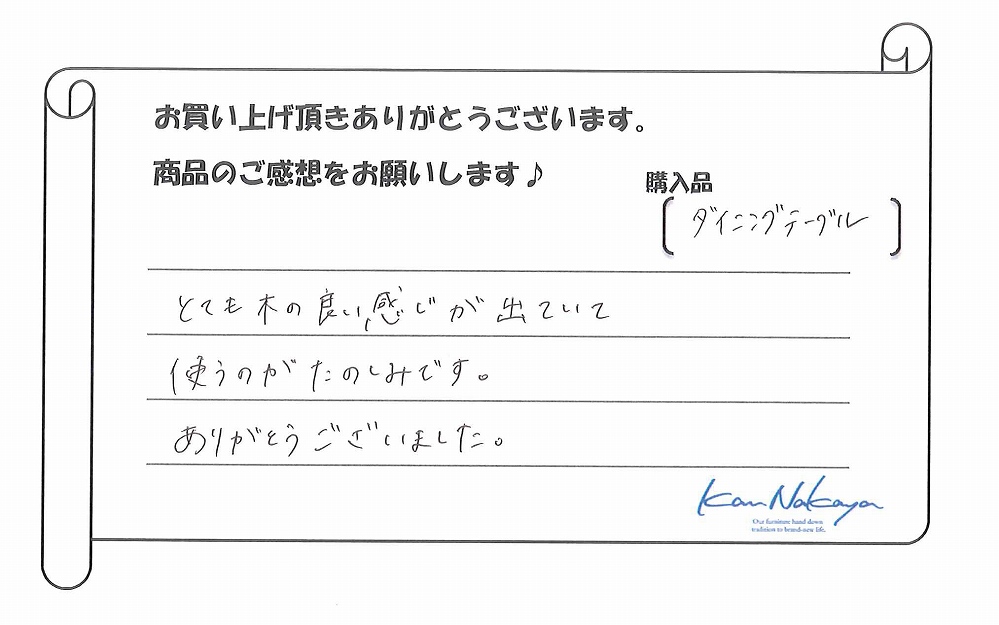 お買い上げ頂きありがとうございます。
商品のご感想をお願いします♪
購入品
ダイニングテーブル
とても木の良い感じが出ていて
使うのがたのしみです。
ありがとうございました。
Kan Nakaya
Our furniture hand down
tradition to brand-new life.